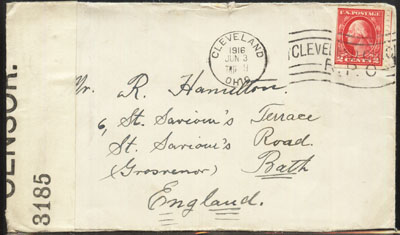 CENSOR.
3185
CLEVELAND
1916
JUN 3
OHIO
U.S. POSTAGE
2 CENTS 2
CLEVEL
R.P.O
Mr. R. Hamilton.
6, St. Saviour's Terrace
St. Saviour's Road.
(Grosvenor) Bath
England.